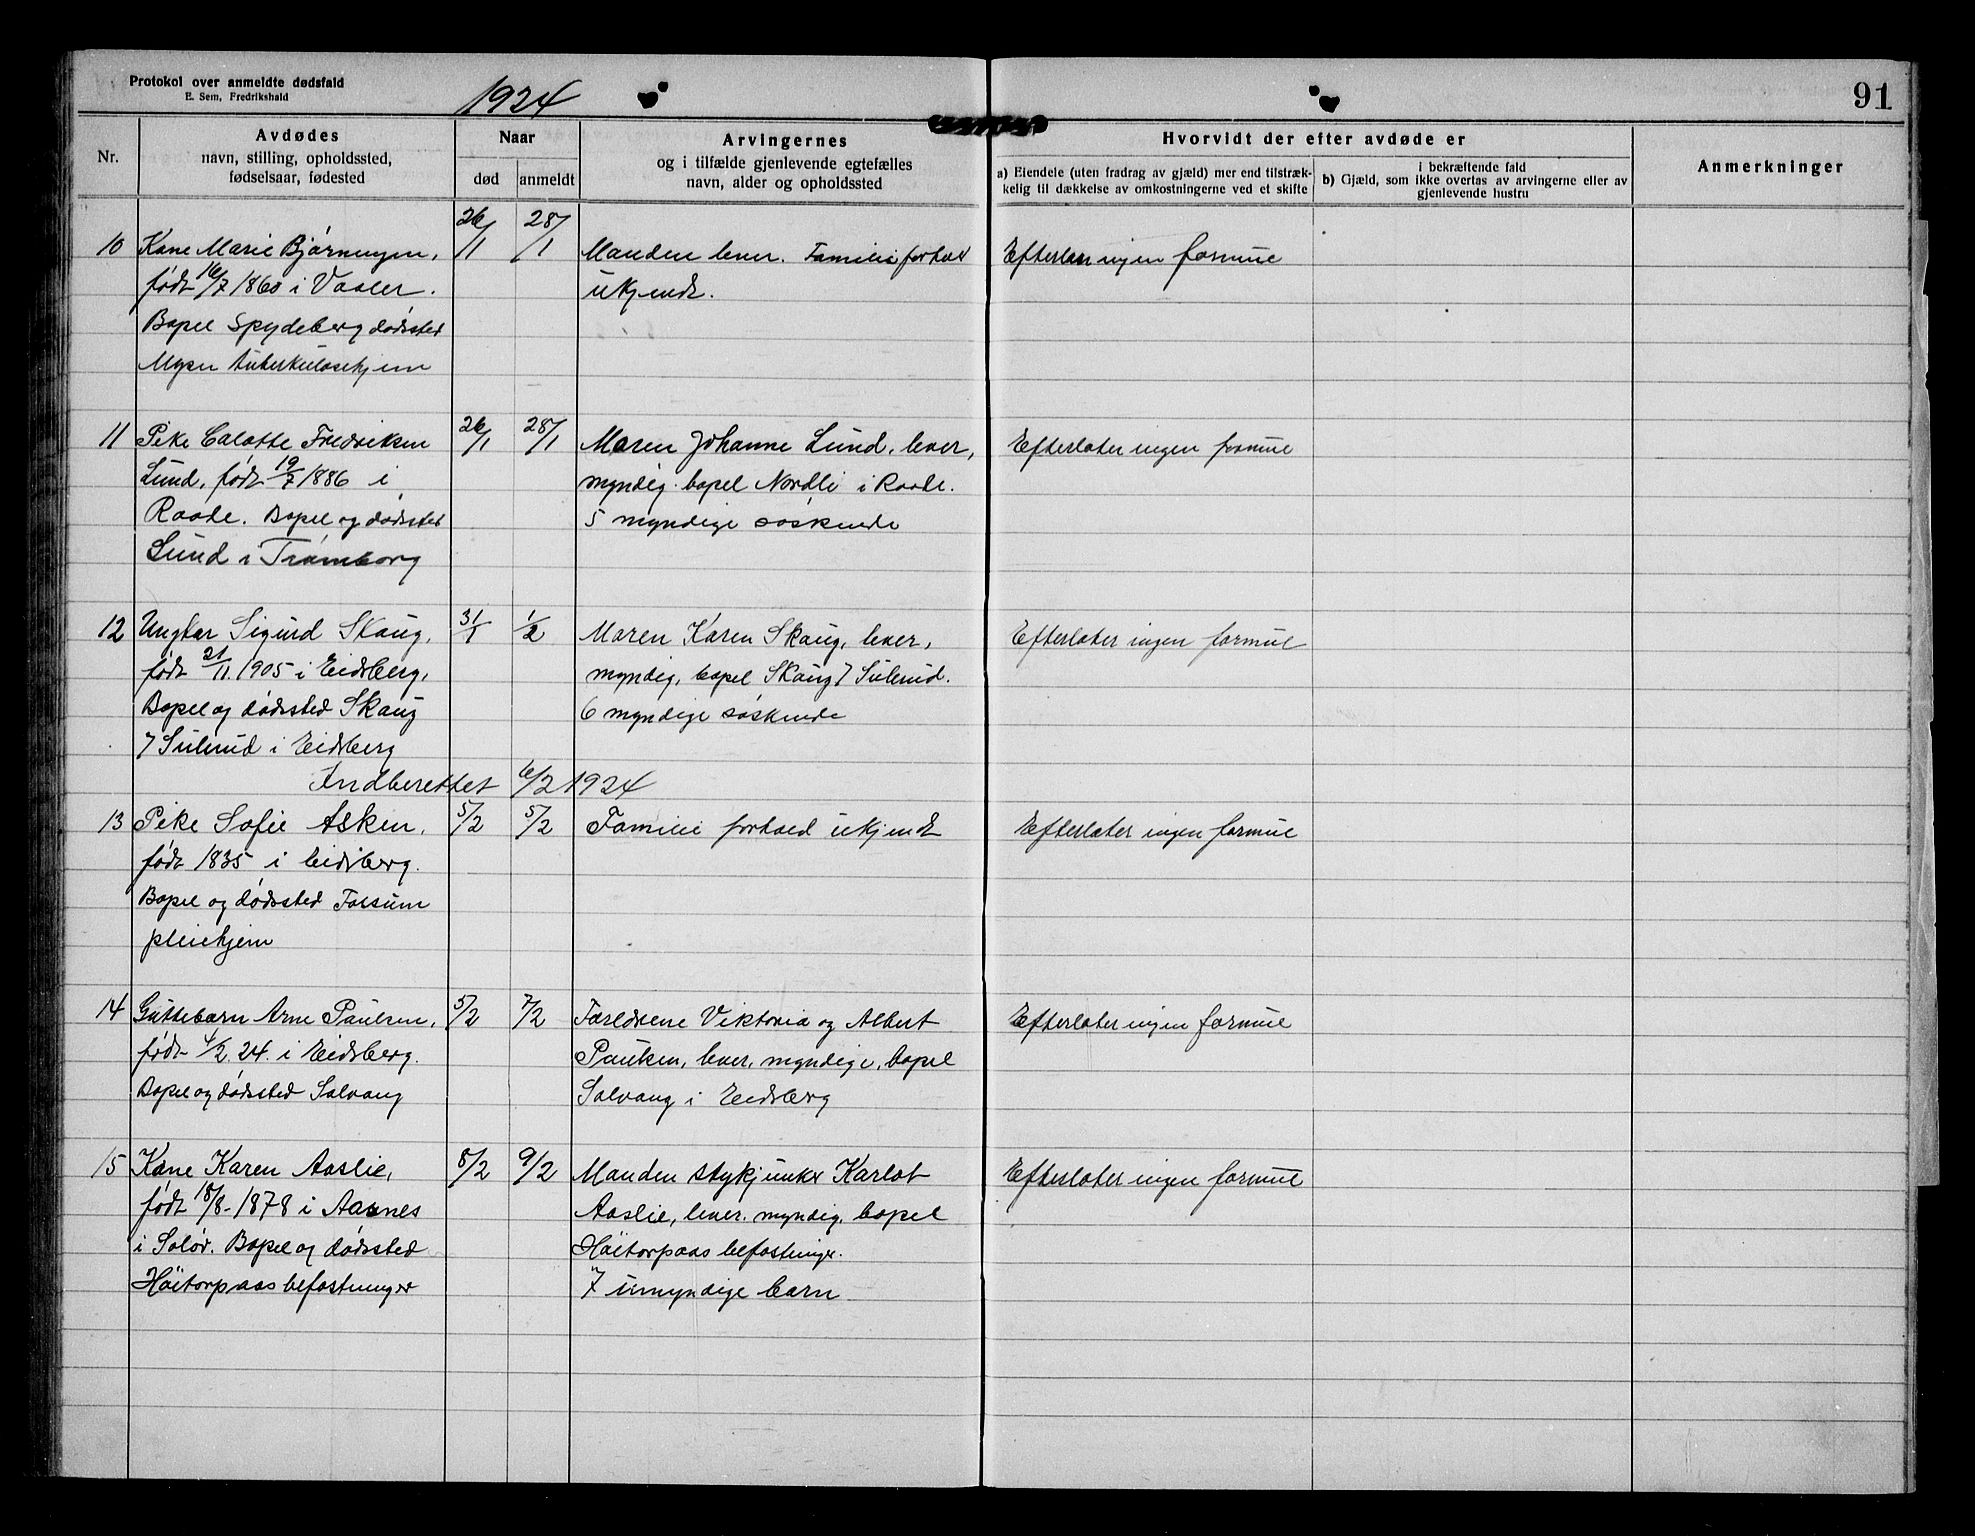 Protokol over anmeldte dødsfald
E. Sem, Fredrikshald
1924
91
Nr.
Avdødes
navn, stilling, opholdssted,
fødselsaar, fødested
Naar
død
anmeldt
Arvingernes
og i tilfælde gjenlevende egtefælles
navn, alder og opholdssted
Hvorvidt der efter avdøde er
a) Eiendele (uten fradrag av gjæld) mer end tilstræk-
kelig til dækkelse av omkostningerne ved et skifte
i bekræftende fald
b) Gjæld, som ikke overtas av arvingerne eller av
gjenlevende hustru
Anmerkninger
10
Kone Marie Bjørnengen,
født 16/7 1860 i Vaaler.
Bopel Spydeberg dødssted
Mysen tuberkulosehjem
26/1
28/1
Manden lever. Familieforhol
ukjendt.
Efterlater ingen formue
11
Pike Calotte Fredriksen
Lund, født 19/7 1886 i
Raade. Bopel og dødssted
Lund i Trømborg
26/1
28/1
Moren Johanne Lund, lever,
myndig. bopel Nordli i Raade.
5 myndige søskende
Efterlater ingen formue
12
Ungkar Sigurd Skaug,
født 21/11 1905 i Eidsberg,
Bopel og dødssted Skaug
7 Sulerud i Eidsberg
31/1
1/2
Moren Karen Skaug, lever,
myndig, bopel Skaug 7 Sulerud.
6 myndige søskende
Efterlater ingen formue
Indberettet 6/2 1924
13
Pike Sofie Asken,
født 1835 i Eidsberg.
Bopel og dødssted Folsum
pleiehjem
5/2
5/2
Familie forhold ukjendt
Efterlater ingen formue
14
Guttebarn Arne Paulsen,
født 4/2 24. i Eidsberg.
Bopel og dødssted Solvang
5/2
7/2
Forældrene Viktoria og Albert
Paulsen, lever, myndige, bopel
Solvang i Eidsberg
Efterlater ingen formue
15
Kone Karen Aaslie,
født 18/8-1878 i Aasnes
i Solør. Bopel og dødssted
Höitorpaas befostninger
8/2
9/2
Manden stykjunker Karlot
Aaslie, lever. myndig. bopel
Höitorpaas befostninger.
7 umyndige barn
Efterlater ingen formue